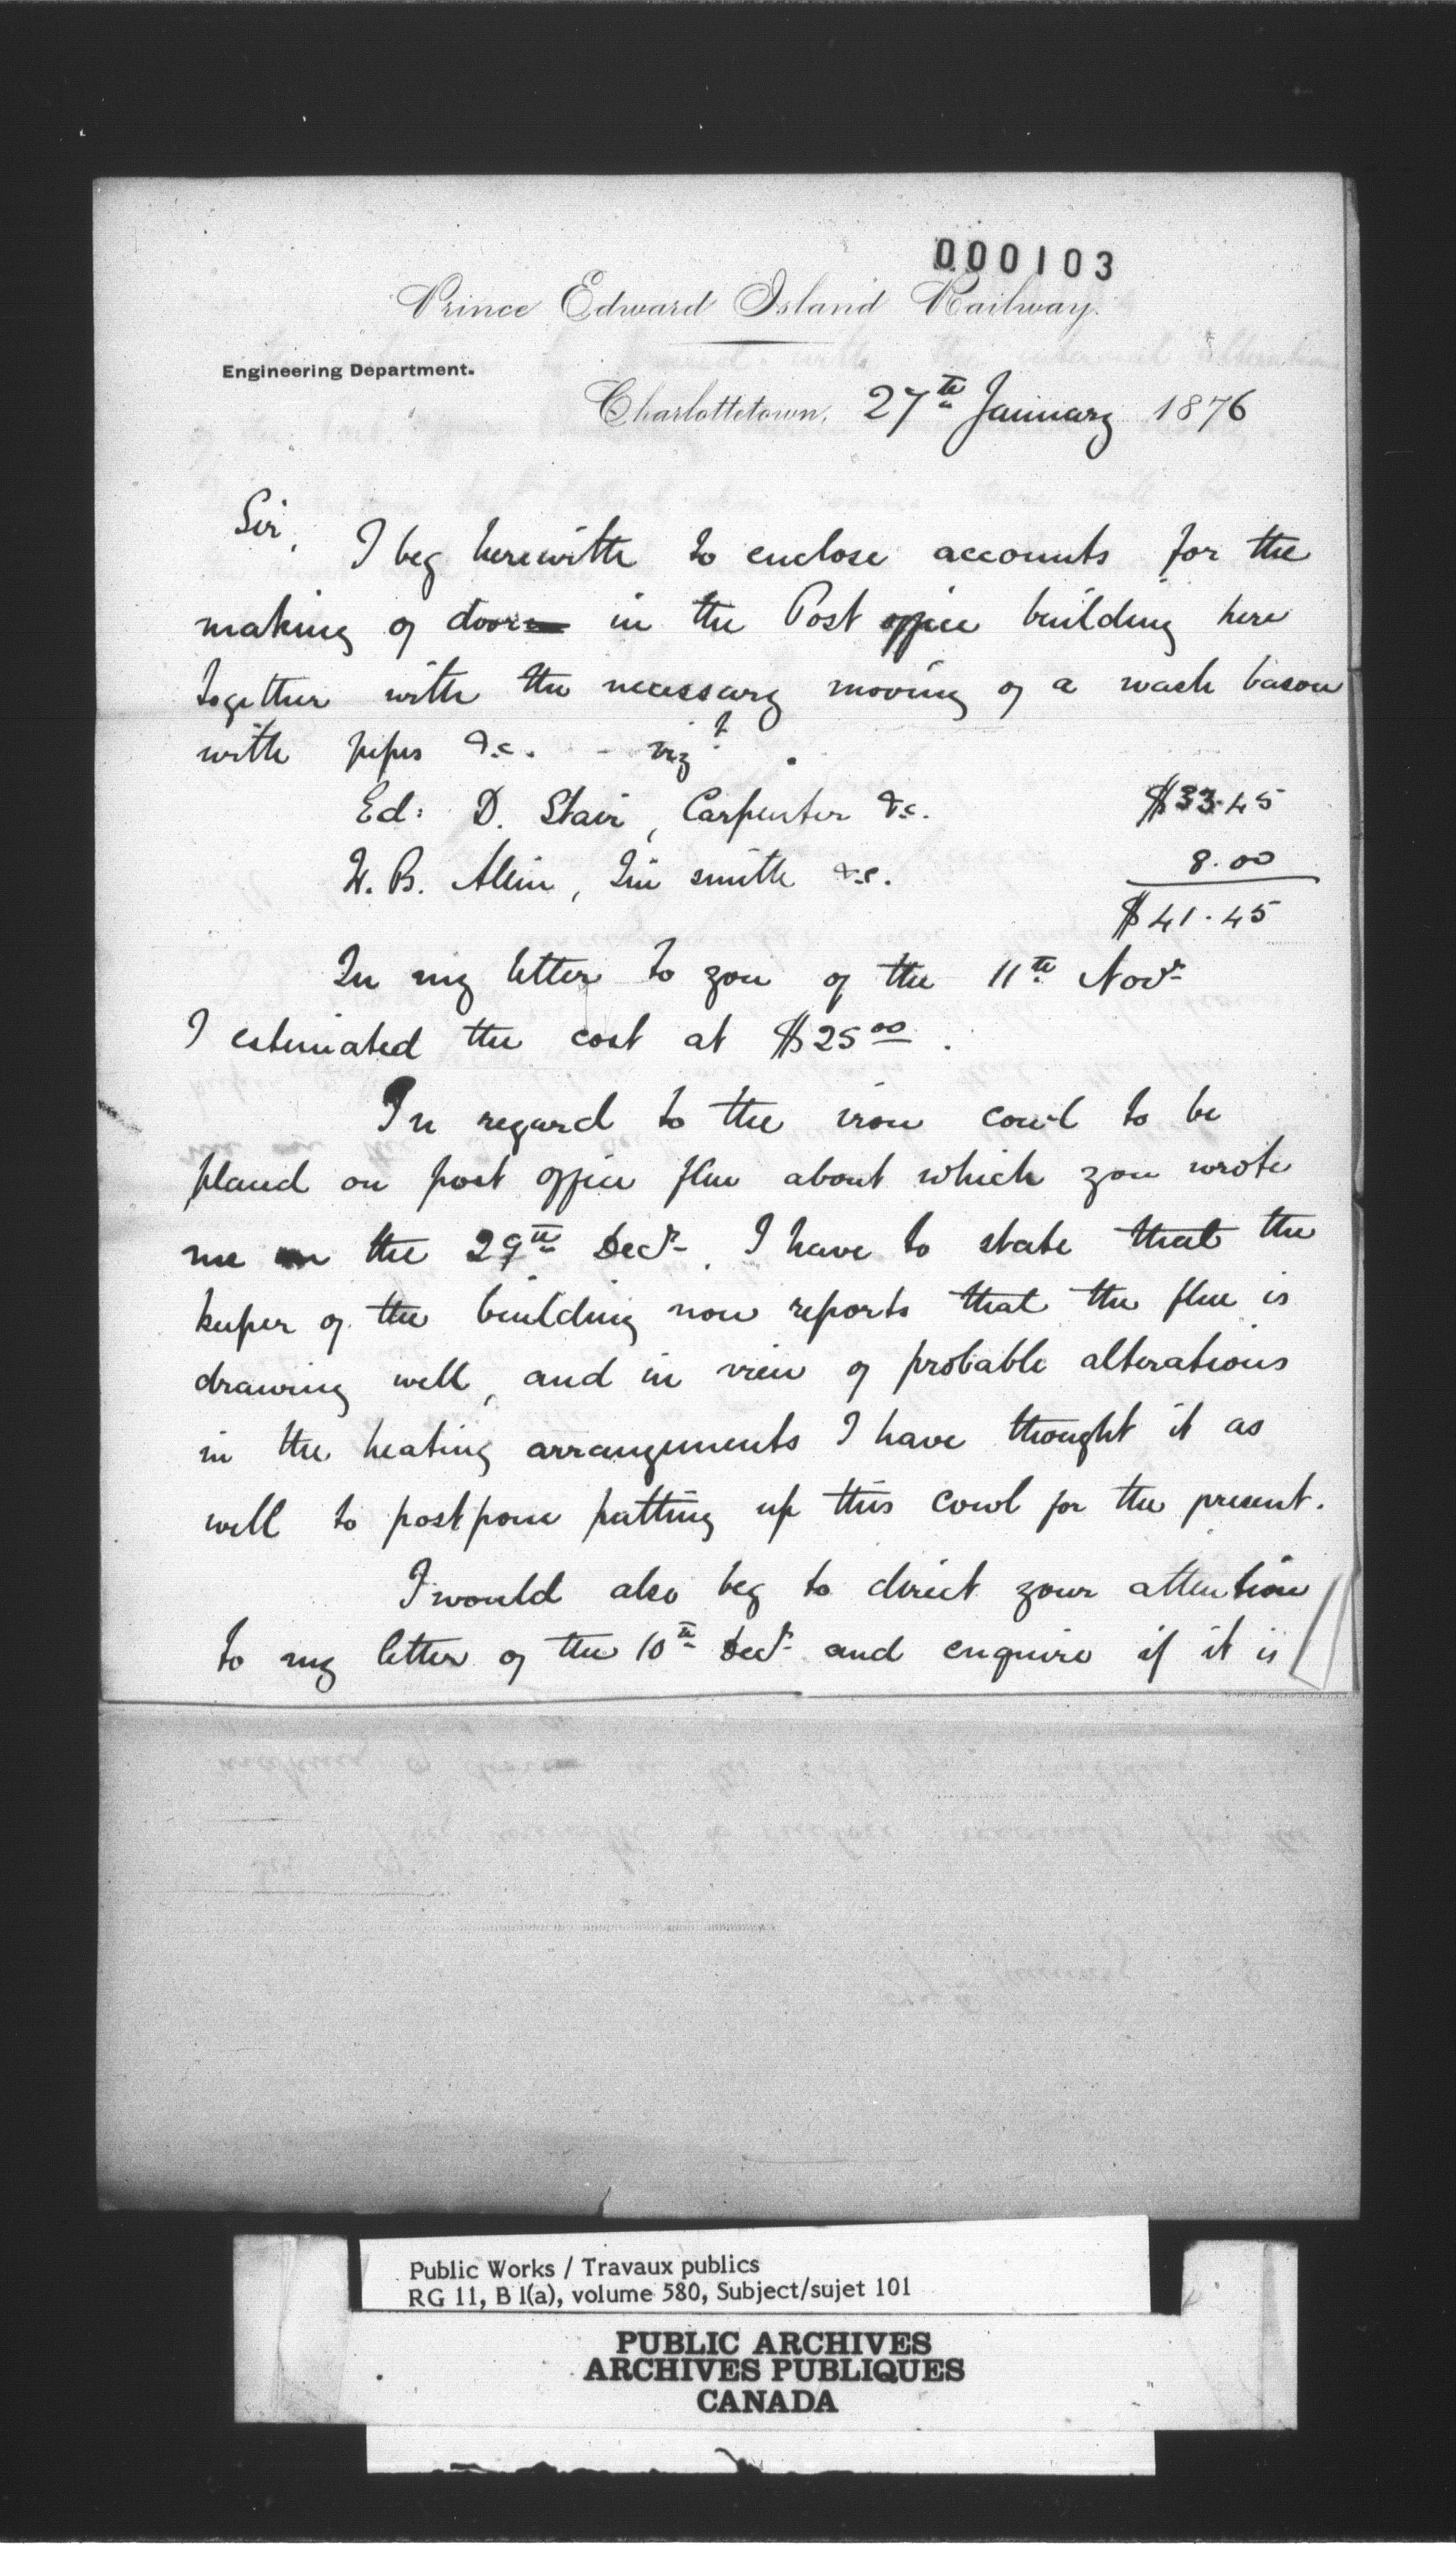 000103
Prince Edward Island Railway.
Engineering Department.
Charlottetown, 27th January 1876
Sir,
I beg herewith to enclose accounts for the
making of door in the Post office building here
together with the necessary moving of a wash bason
with pipes &c. - vizt.
Ed: D. Stair, Carpenter &c. $33.45
W. B. Alein, Tin smith &c. 8.00
$41.45
In my letter to you of the 11th Novr
I estimated the cost at $25.00.
In regard to the iron cowl to be
placed on post office flue about which you wrote
me on the 29th Decr. I have to state that the
keeper of the building now reports that the flue is
drawing well, and in view of probable alterations
in the heating arrangements I have thought it as
well to postpone putting up this cowl for the present.
I would also beg to direct your attention
to my letter of the 10th Decr and enquire if it is
Public Works / Travaux publics
RG 11, B 1(a), volume 580, Subject/sujet 101
PUBLIC ARCHIVES
ARCHIVES PUBLIQUES
CANADA